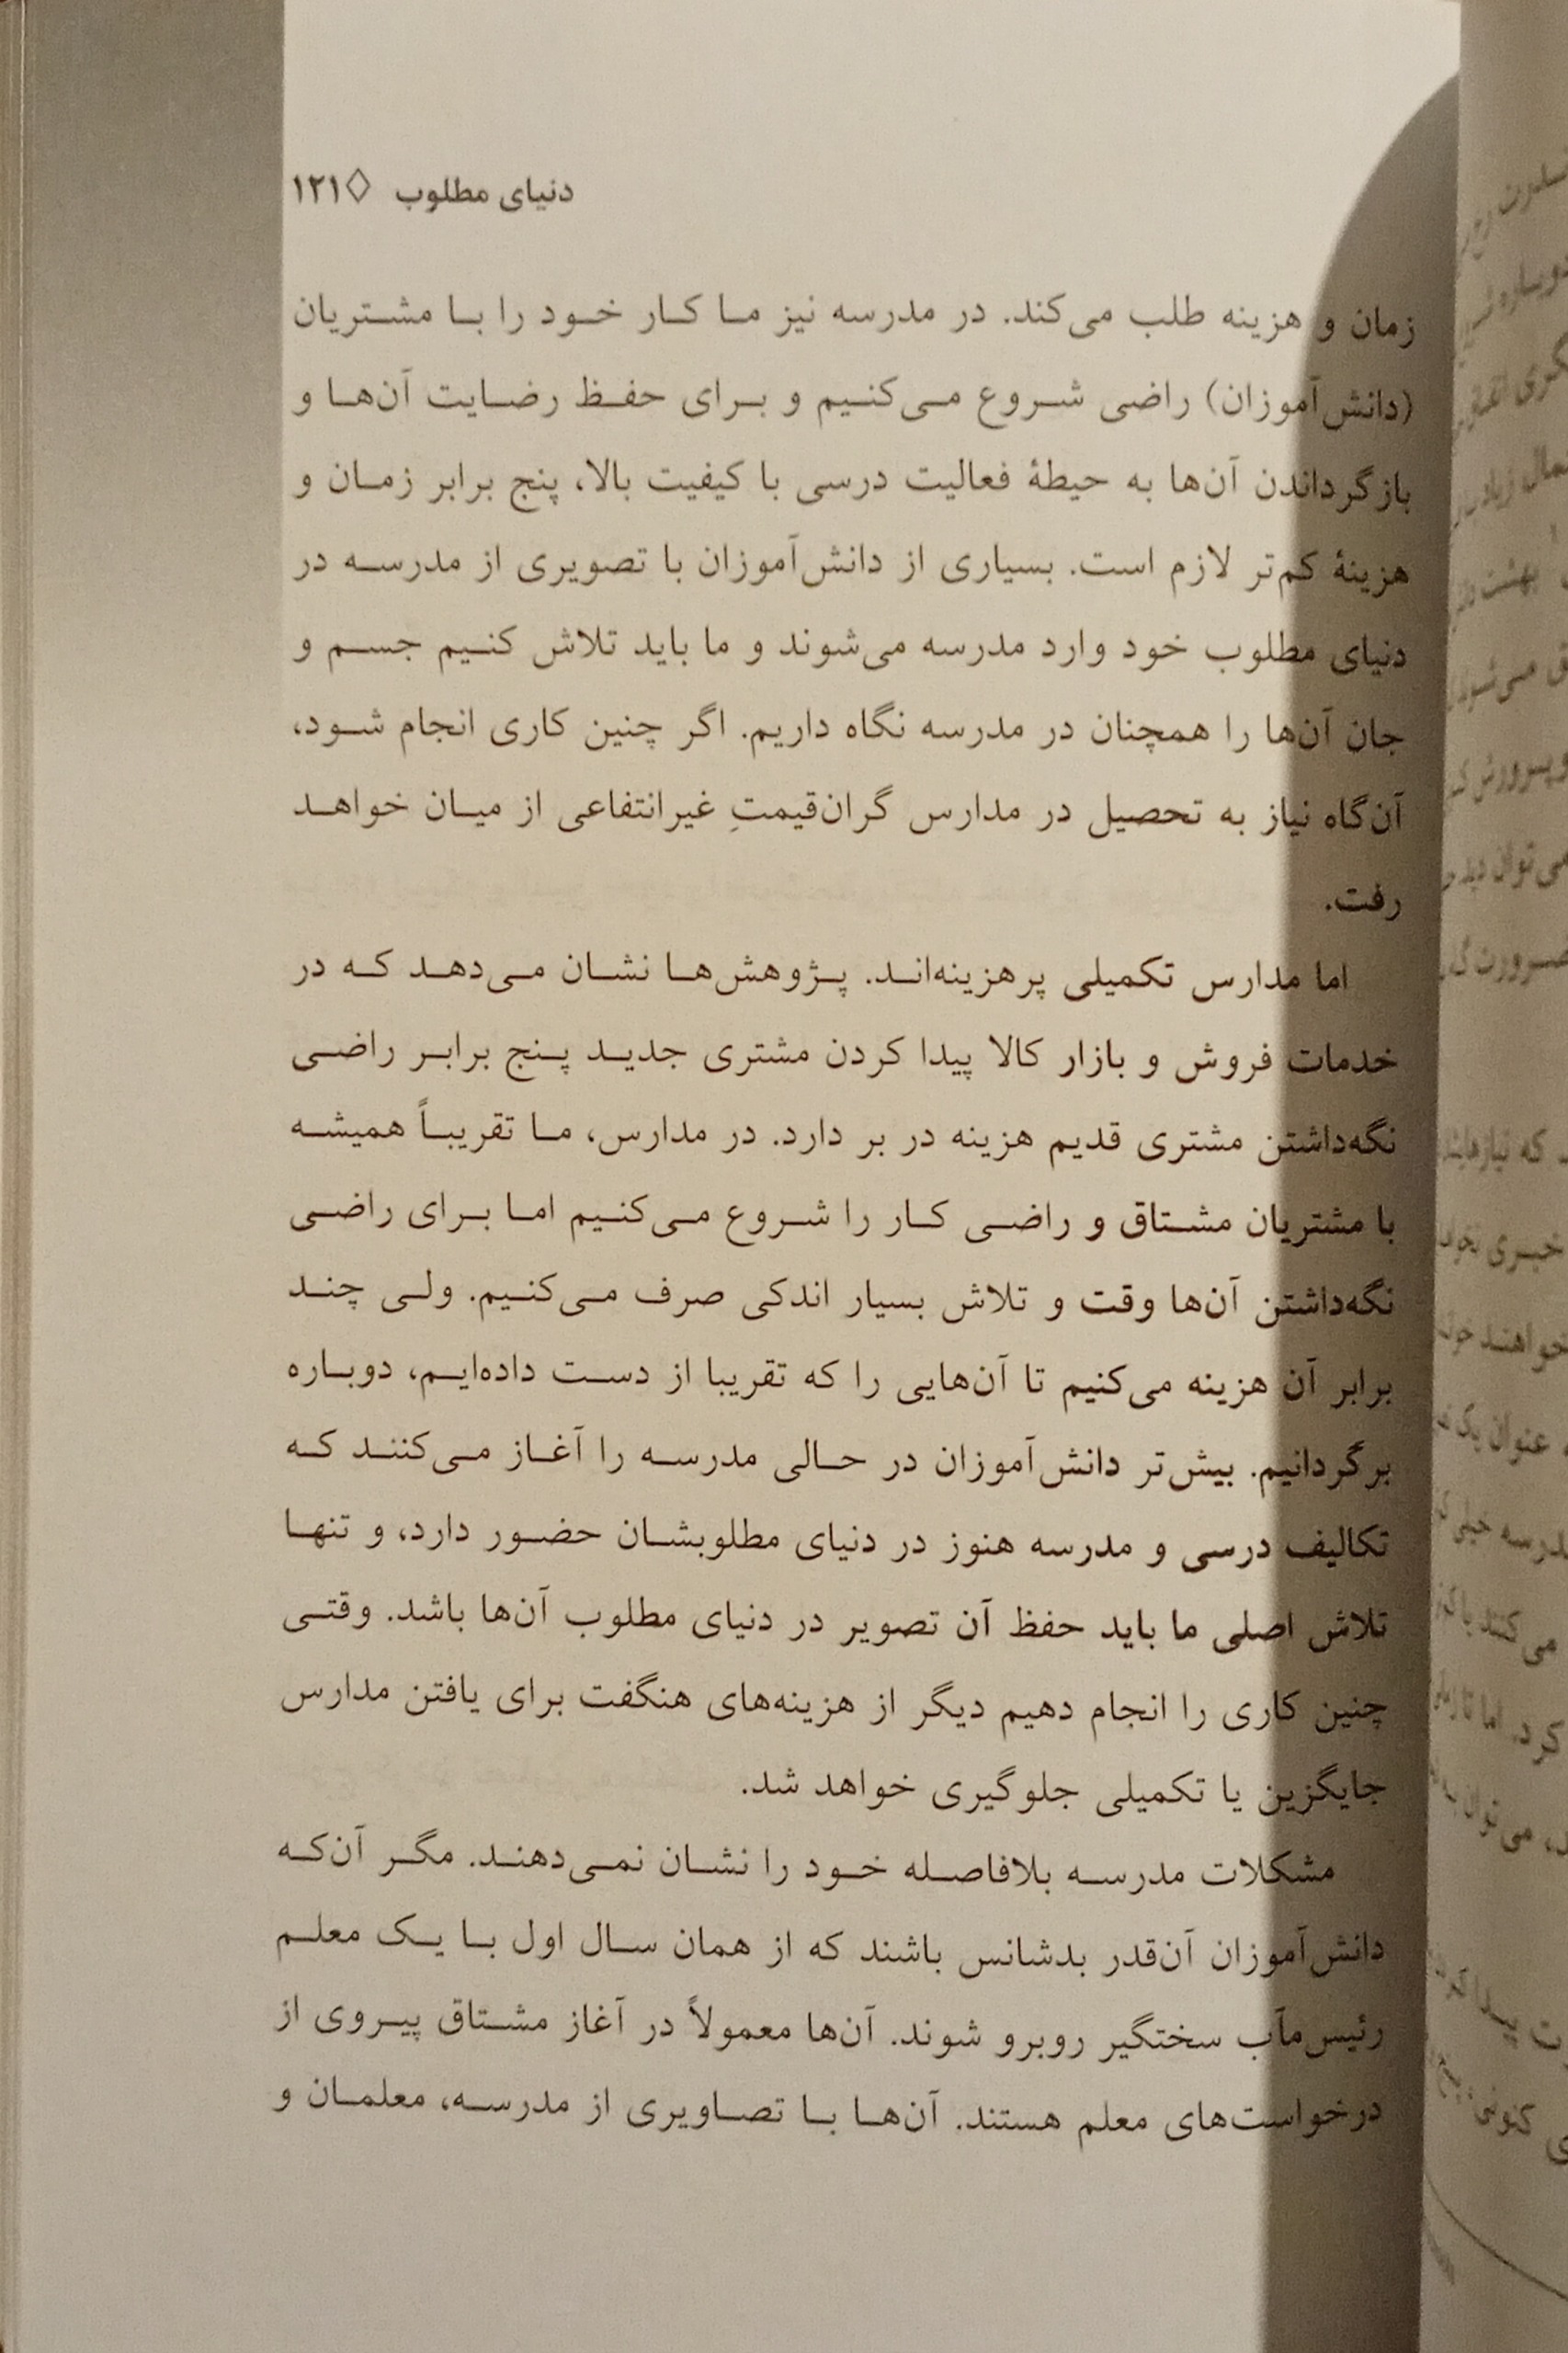 دنیای مطلوب ◊ ۱۲۱
زمان و هزینه طلب می‌کند. در مدرسه نیز ما کار خود را با مشتریان
(دانش‌آموزان) راضی شروع می‌کنیم و برای حفظ رضایت آن‌ها و
بازگرداندن آن‌ها به حیطهٔ فعالیت درسی با کیفیت بالا، پنج برابر زمان و
هزینهٔ کم‌تر لازم است. بسیاری از دانش‌آموزان با تصویری از مدرسه در
دنیای مطلوب خود وارد مدرسه می‌شوند و ما باید تلاش کنیم جسم و
جان آن‌ها را همچنان در مدرسه نگاه داریم. اگر چنین کاری انجام شود،
آن‌گاه نیاز به تحصیل در مدارس گران‌قیمتِ غیرانتفاعی از میان خواهد
رفت.
اما مدارس تکمیلی پرهزینه‌اند. پژوهش‌ها نشان می‌دهد که در
خدمات فروش و بازار کالا پیدا کردن مشتری جدید پنج برابر راضی
نگه‌داشتن مشتری قدیم هزینه در بر دارد. در مدارس، ما تقریباً همیشه
با مشتریان مشتاق و راضی کار را شروع می‌کنیم اما برای راضی
نگه‌داشتن آن‌ها وقت و تلاش بسیار اندکی صرف می‌کنیم. ولی چند
برابر آن هزینه می‌کنیم تا آن‌هایی را که تقریبا از دست داده‌ایم، دوباره
برگردانیم. بیش‌تر دانش‌آموزان در حالی مدرسه را آغاز می‌کنند که
تکالیف درسی و مدرسه هنوز در دنیای مطلوبشان حضور دارد، و تنها
تلاش اصلی ما باید حفظ آن تصویر در دنیای مطلوب آن‌ها باشد. وقتی
چنین کاری را انجام دهیم دیگر از هزینه‌های هنگفت برای یافتن مدارس
جایگزین یا تکمیلی جلوگیری خواهد شد.
مشکلات مدرسه بلافاصله خود را نشان نمی‌دهند. مگر آن‌که
دانش‌آموزان آن‌قدر بدشانس باشند که از همان سال اول با یک معلم
رئیس‌مآب سختگیر روبرو شوند. آن‌ها معمولاً در آغاز مشتاق پیروی از
درخواست‌های معلم هستند. آن‌ها با تصاویری از مدرسه، معلمان و